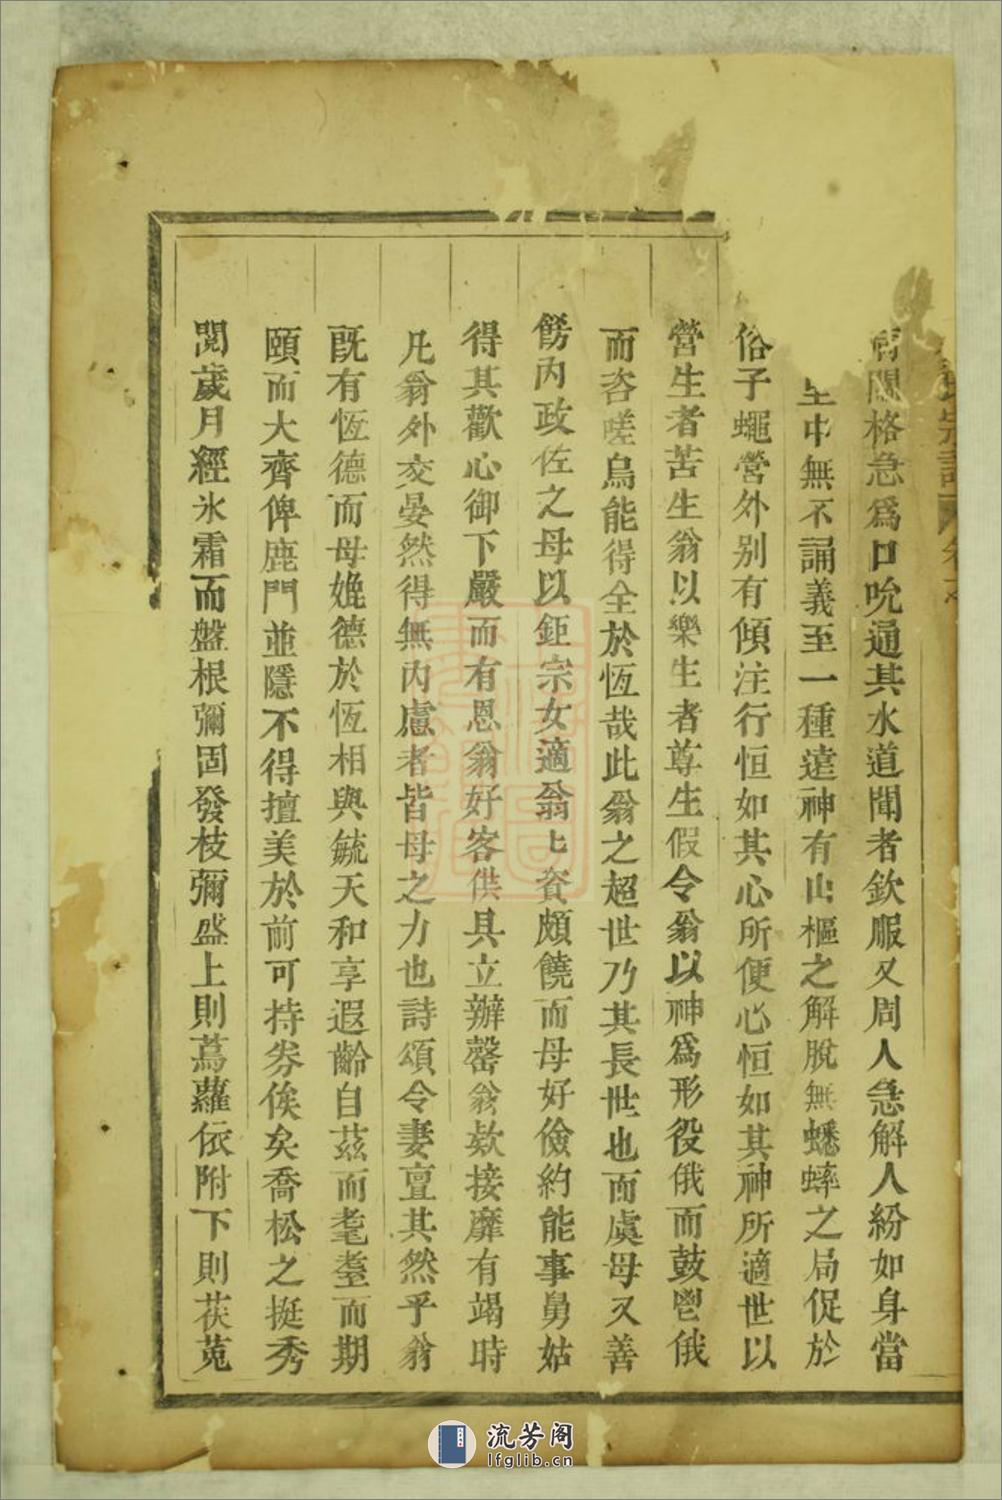 宗譜
關格急爲口吮通其水道聞者欽服又周人急解人紛如身當
中無不誦義至一種遠神有山樞之解脫無蟋蟀之局促於
俗子蠅營外别有傾注行恒如其心所便心恒如其神所適世以
營生者苦生翁以樂生者尊生假令翁以神爲形役俄而鼓鬯俄
而咨嗟烏能得全於恆哉此翁之超世乃其長世也而虞母又善
飭內政佐之母以鉅宗女適翁上資頗饒而母好儉約能事舅姑
得其歡心御下嚴而有恩翁好客供具立辦罄翁欵接靡有竭時
凡翁外交晏然得無內慮者皆母之力也詩頌令妻亶其然乎翁
旣有恆德而母娩德於恆相與毓天和享遐齡自茲而耄耋而期
頤而大齊俾鹿門並隱不得擅美於前可持券俟矣喬松之挺秀
閱歲月經氷霜而盤根彌固發枝彌盛上則蔦蘿依附下則茯菟
流芳阁
lfglib.cn